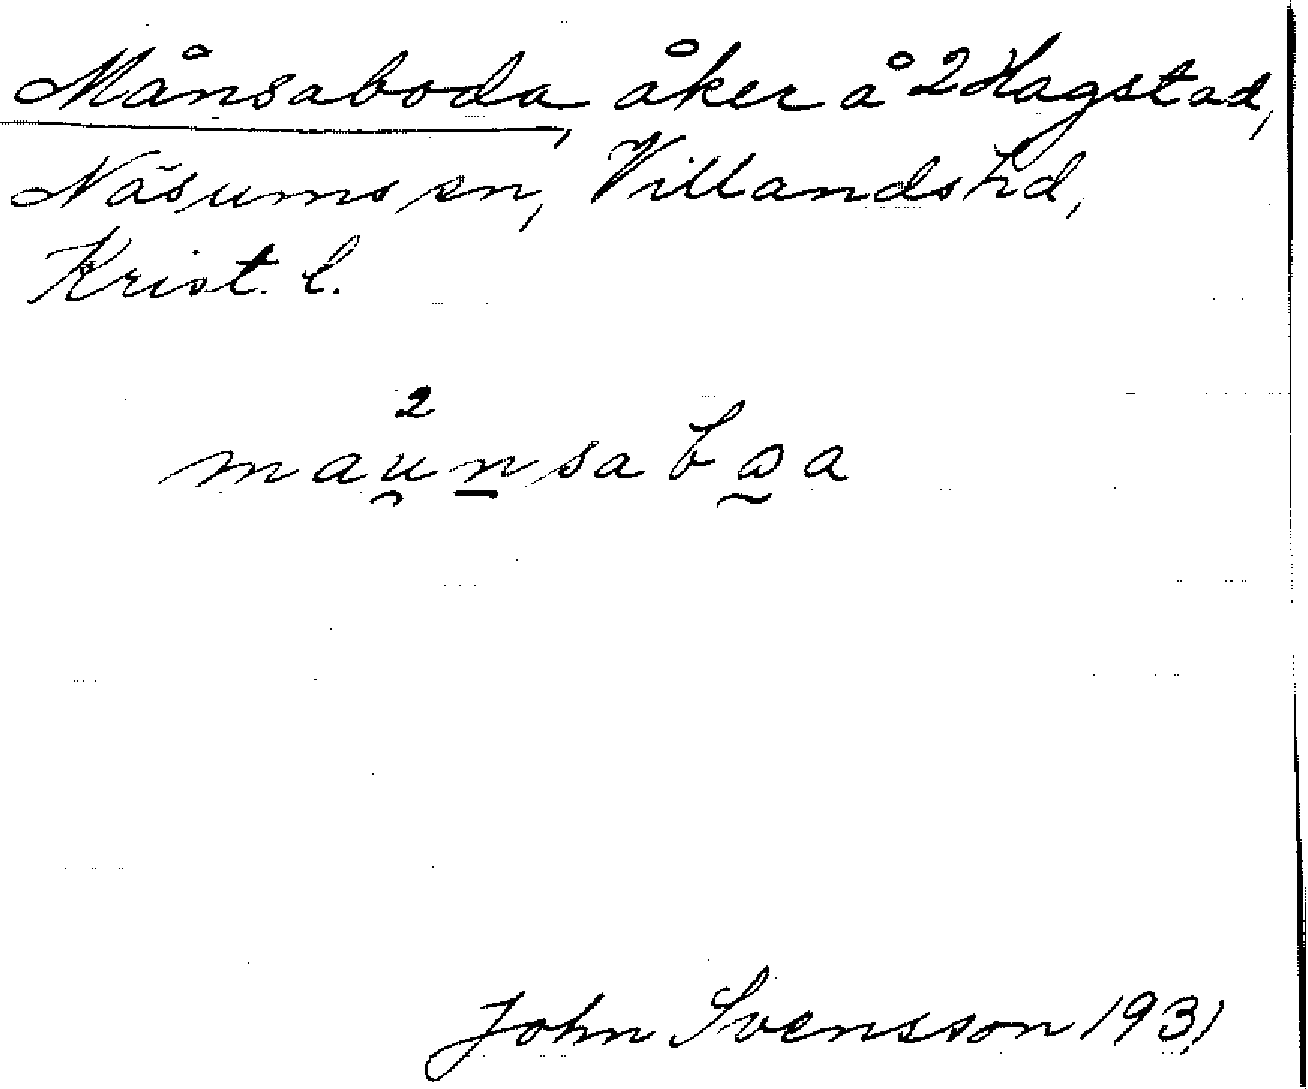 Månsaboda, åker å 2 Hagstad,
Näsums sn, Villands hd,
Krist. l.
2
mau̯n̠sabɷ̰a
John Svensson 1931